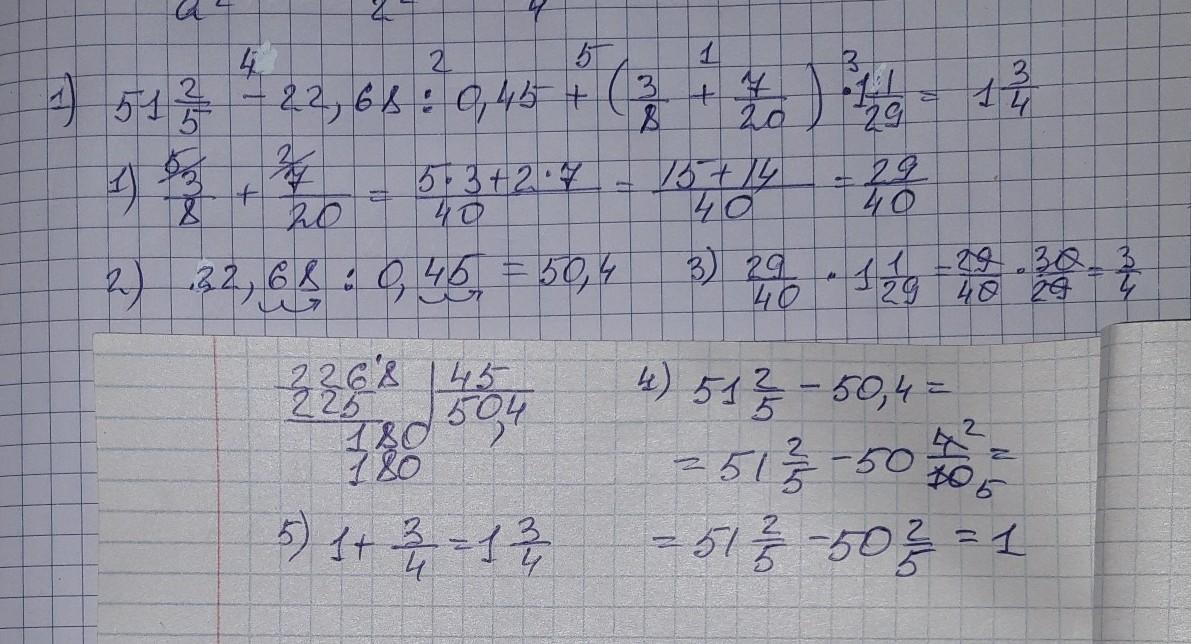 4 2 5 1 3
1) 51 2/5 - 22,68 : 0,45 + (3/8 + 7/20) · 1 1/29 = 1 3/4
1) 3/8 + 7/20 = 5·3+2·7/40 = 15+14/40 = 29/40
2) 22,68 : 0,45 = 50,4 3) 29/40 · 1 1/29 = 29/40 · 30/29 = 3/4
2268 | 45
225 | 50,4
180
180
4) 51 2/5 - 50,4 =
= 51 2/5 - 50 4/10 =
= 51 2/5 - 50 2/5 = 1
5) 1 + 3/4 = 1 3/4